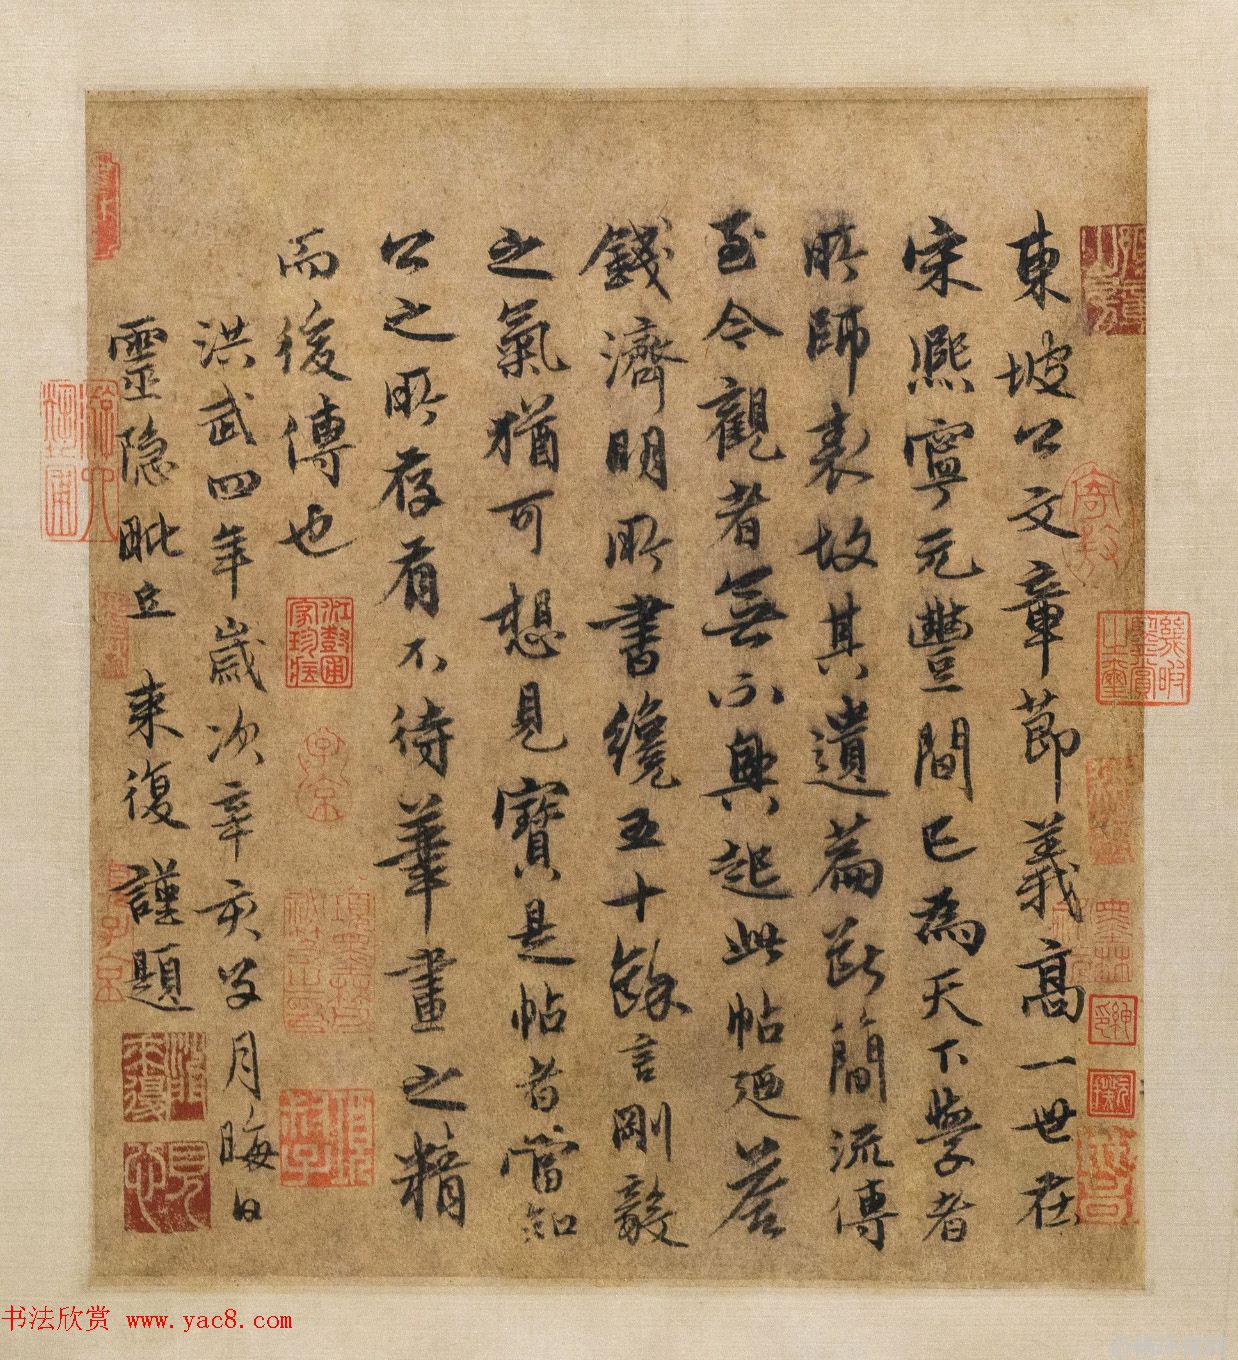 東坡公文章節義高一世在
宋熙寧元豐間已為天下學者
所師表故其遺篇斷簡流傳
至今觀者無不興起此帖廼答
錢濟明所書纔五十餘言剛毅
之氣猶可想見寶是帖者當知
公之所存有不待華畫之精
而後傳也
洪武四年歲次辛亥 月晦日
靈隐毗丘 来復謹題
幾暇鑒賞之璽
子京
来復
書法欣赏 www.yac8.com